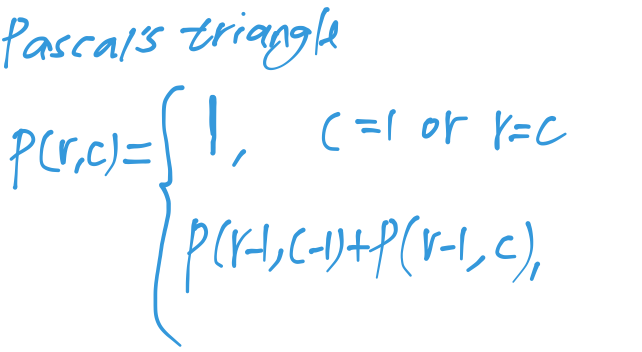 Pascal's triangle
P(r,c)= { 1, c=1 or r=c
P(r-1,c-1)+P(r-1,c),